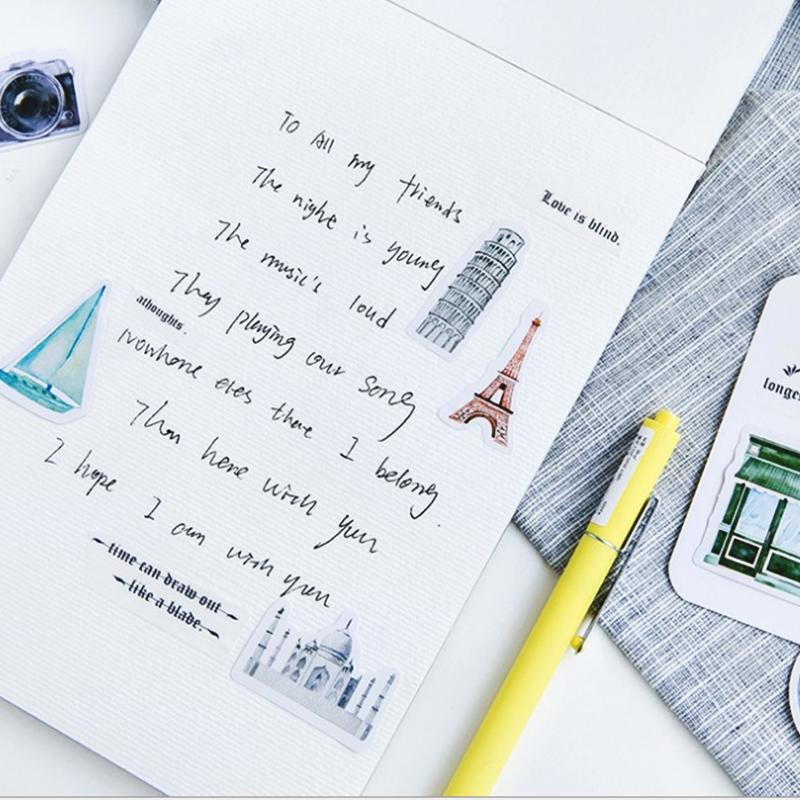 To All my friends
Love is blind.
The night is young
The music's loud
They playing our song
athoughts.
Nowhere eles there I belong.
Than here with you
I hope I am with you
time can draw out
like a blade.
longe